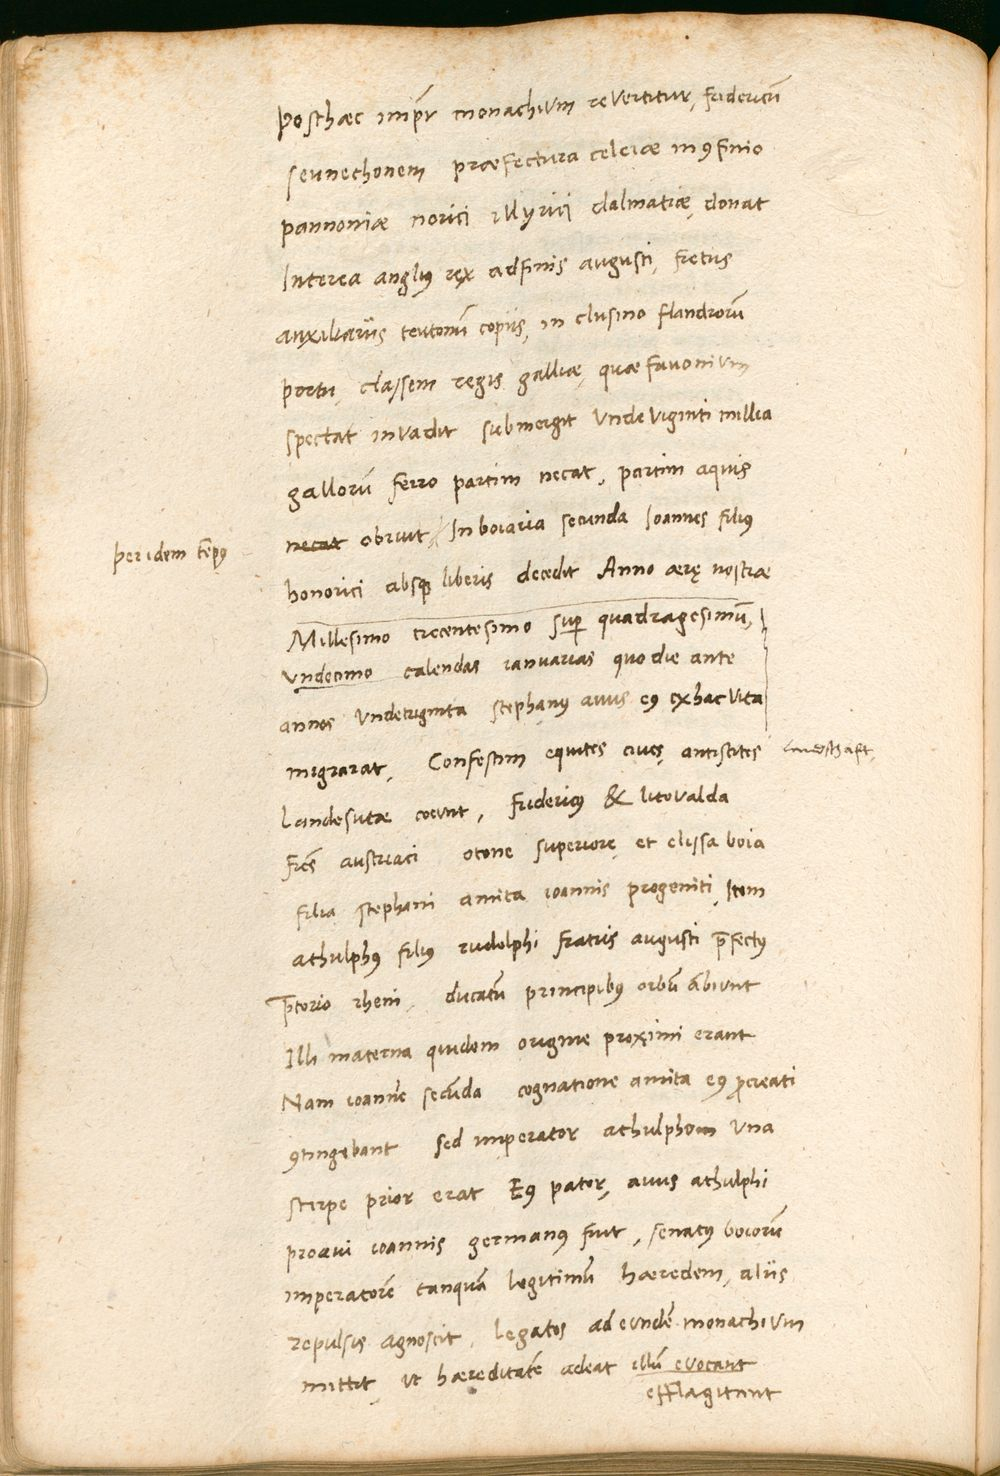 Posthæc imp̄r monachium revertitur, fridericū
seunechonem præfectura celeiæ in ꝯfinio
pannoniæ norici illyrici dalmatiæ, donat
Interea angliꝰ rex adfinis augusti, fretus
auxiliariis teutonū copiis, in clusino flandrorū
portu, classem regis galliæ, quæ favonium
spectat invadit submergit undeviginti millia
gallorū ferro partim necat, partim aquis
necat obruit // In boiaria secunda Ioannes filiꝰ
per idem tēpꝰ
honorici absqꝫ liberis decedit Anno aerę nostræ
Millesimo trecentesimo suꝑ quadragesimū,
undecimo calendas ianuarias quo die ante
annos undetriginta stephanꝰ avus eꝰ ex hac vita
migrarat, Confestim equites cives antistites
landschaft,
Landesutæ coeunt, fridericꝰ & litovalda
fr̄es austriaci otone superiore, et elissa boia
filia stephani amita ioannis progeniti, Item
athulphꝰ filiꝰ rudolphi fratris augusti p̄fectꝰ
p̄torio rheni, ducatū principibꝰ orbū ambiunt
Illi materna quidem origine proximi erant
Nam ioannē secūda cognatione amita eꝰ ꝓcreati
ꝯtingebant sed imperator athulphom una
stirpe prior erat Eꝰ pater, avus athulphi
proavi ioannis germanꝰ fuit, senatꝰ boiorū
imperatorē tanquā legitimū hæredem, aliis
repulsis agnoscit, legatos ad eundē monachium
mittit, ut hæreditatē adeat illū evocant
efflagitant